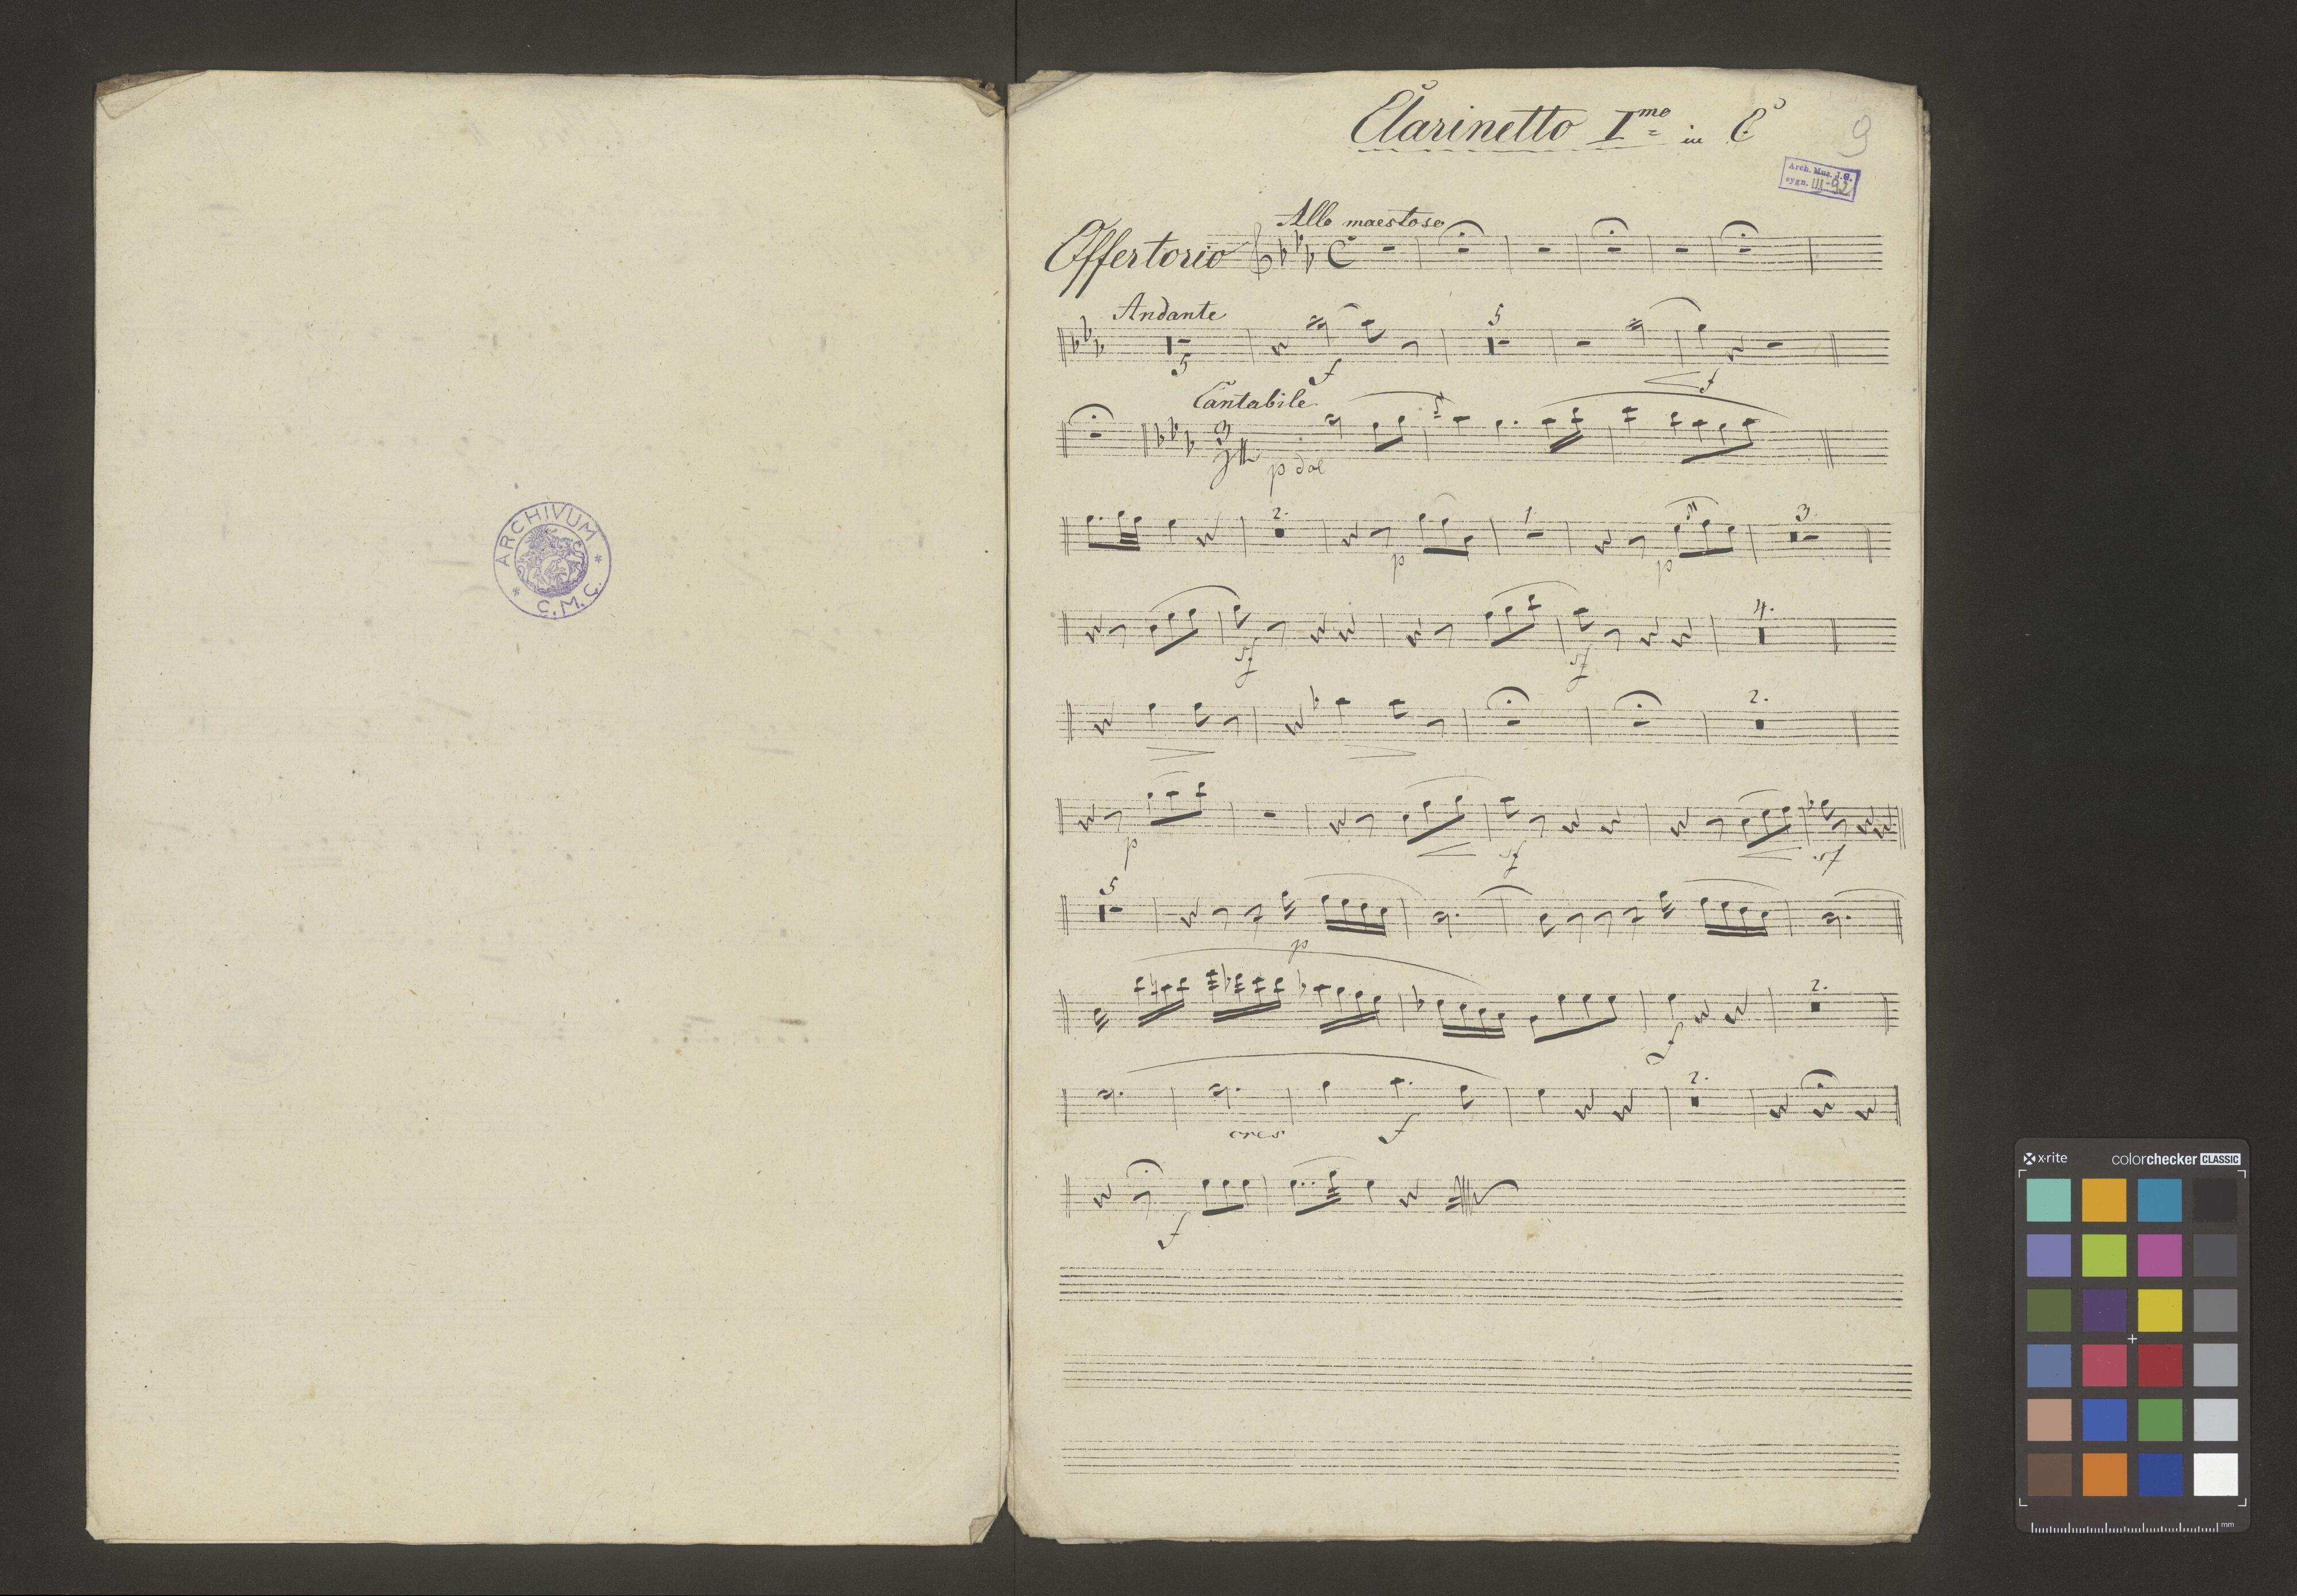 ARCHIVUM
* C.M.C. *
Clarinetto Imo in C
9
Arch. Mus. J.G.
sygn. III-92
Allo maestoso
Offertorio
Andante
5
5
f
f
Cantabile
3
4
p dol
2.
1
3
p
p
sf
sf
4.
2.
p
sf
sf
5
p
2.
f
2.
cres
f
f
x-rite colorchecker CLASSIC
mm